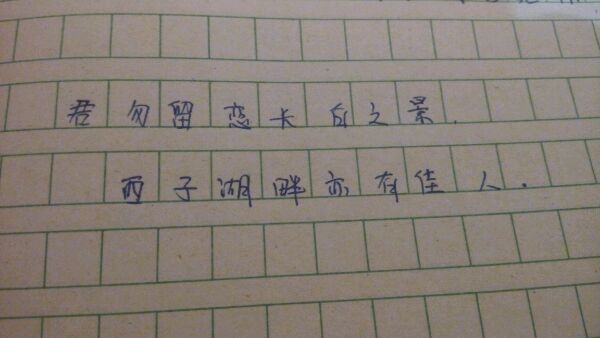 君勿留恋长白之景.
西子湖畔亦有佳人.